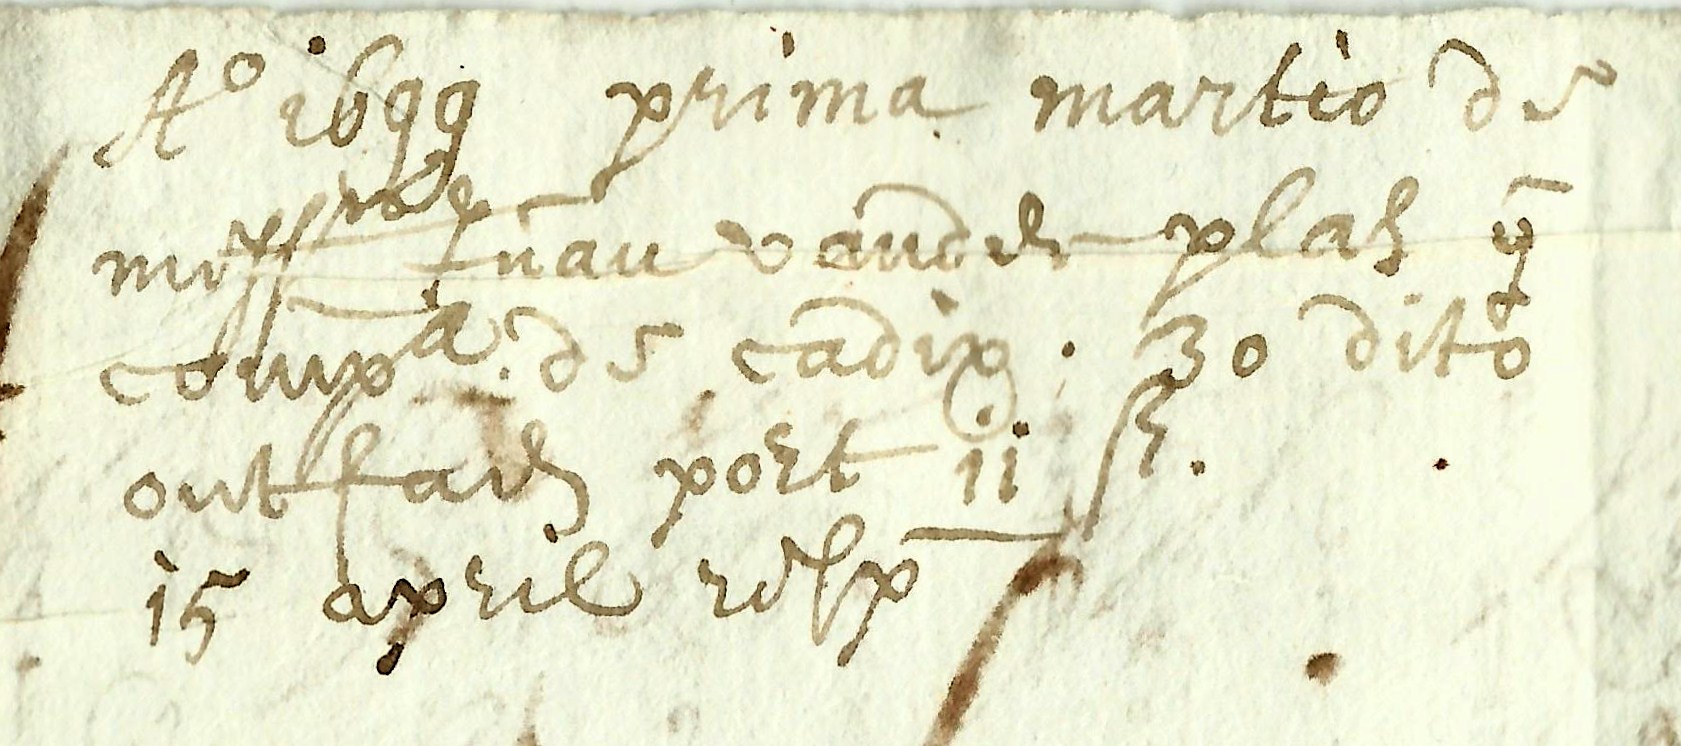 A° 1699 prima martio de
Mess.rs Juan vander plas y
comp.a de cadix · 30 dito
ontfaen port 11 ß.
15 april resp